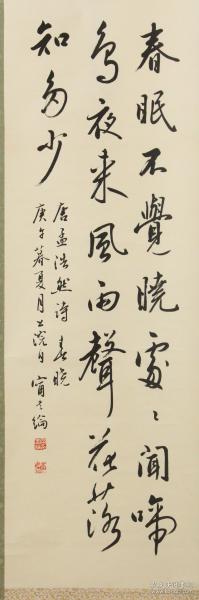 春眠不覺曉處〻聞啼
鳥夜来風雨聲花落
知多少
唐孟浩然诗 春晓
庚午暮夏月上浣日 甯